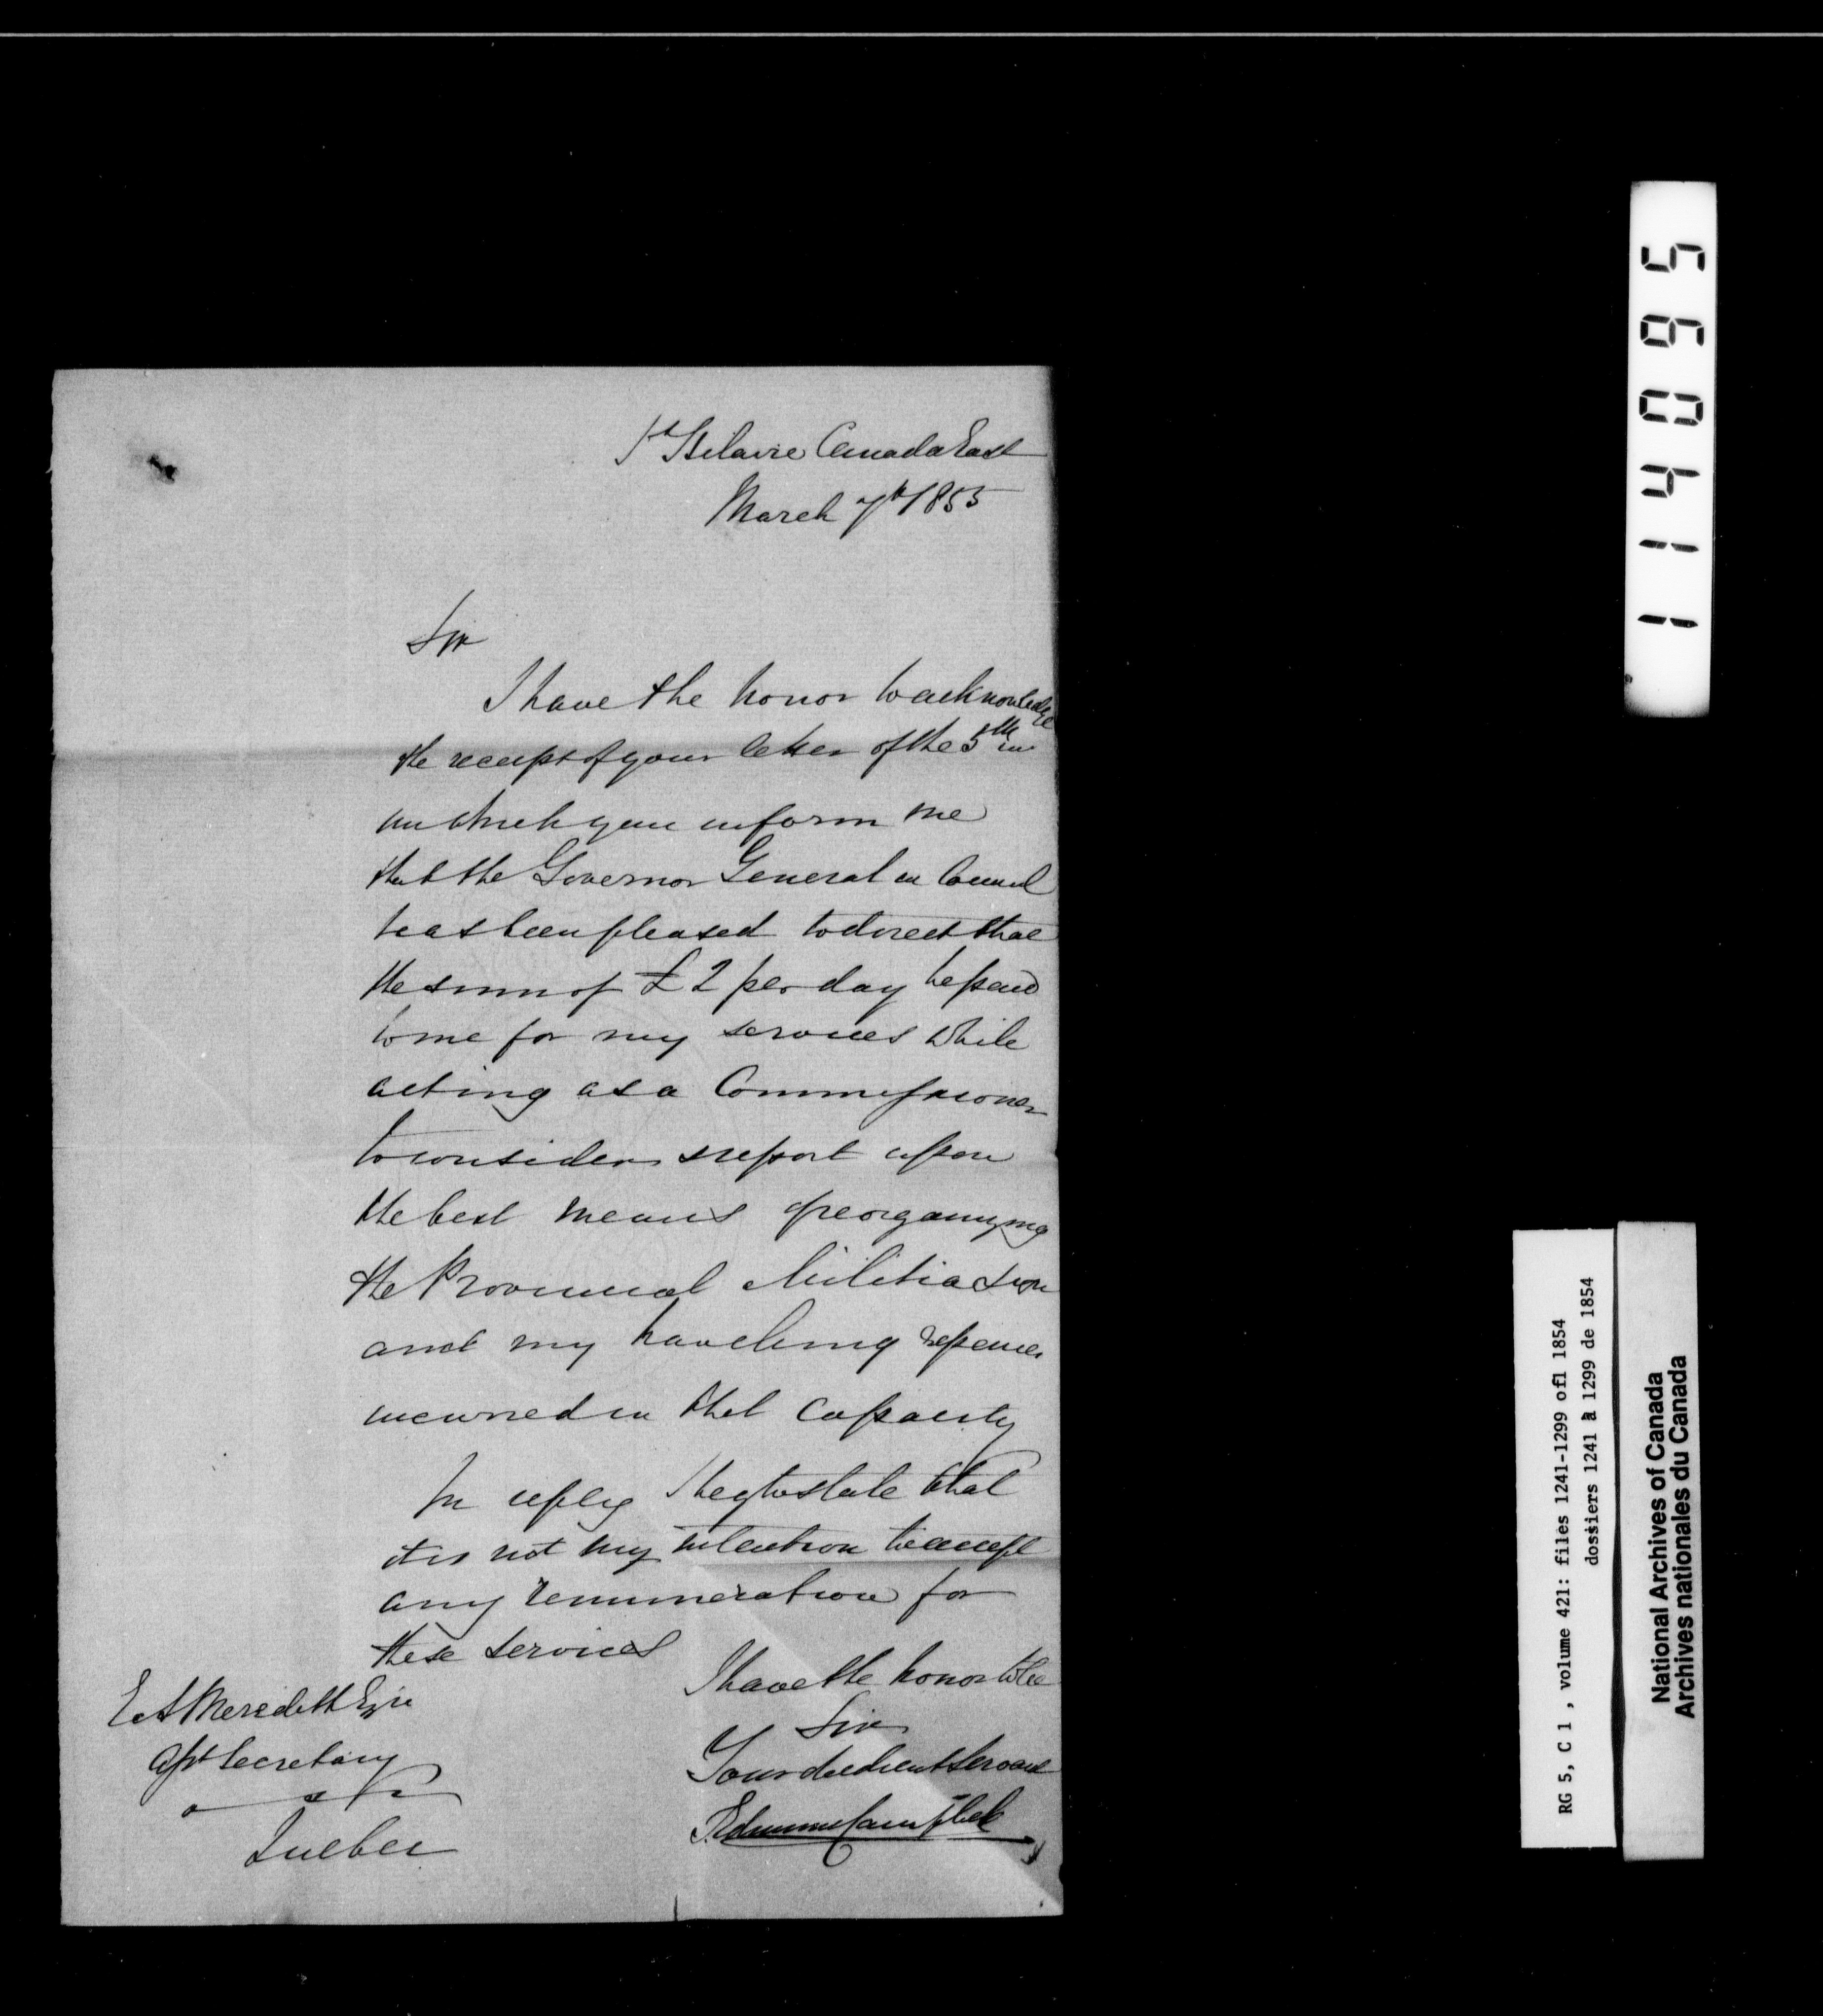 St Hilaire Canada East
March 7th 1855
Sir
I have the honor to acknowledge
the receipt of your letter of the 5th in
in which you inform me
that the Governor General in Council
has been pleased to direct that
the sum of £2 per day be paid
to me for my services while
acting as a Commissioner
to consider & report upon
the best means of reorganizing
the Provincial Militia
and my traveling expenses
incurred in that capacity
In reply I beg to state that
it is not my intention to accept
any remuneration for
these services
I have the honor to be
Sir
Your obedient Servant
T. Edmund Campbell
E A Meredith Esqre
Asst Secretary
Quebec
114095
RG 5, C 1 , volume 421: files 1241-1299 of1 1854
dossiers 1241 à 1299 de 1854
National Archives of Canada
Archives nationales du Canada